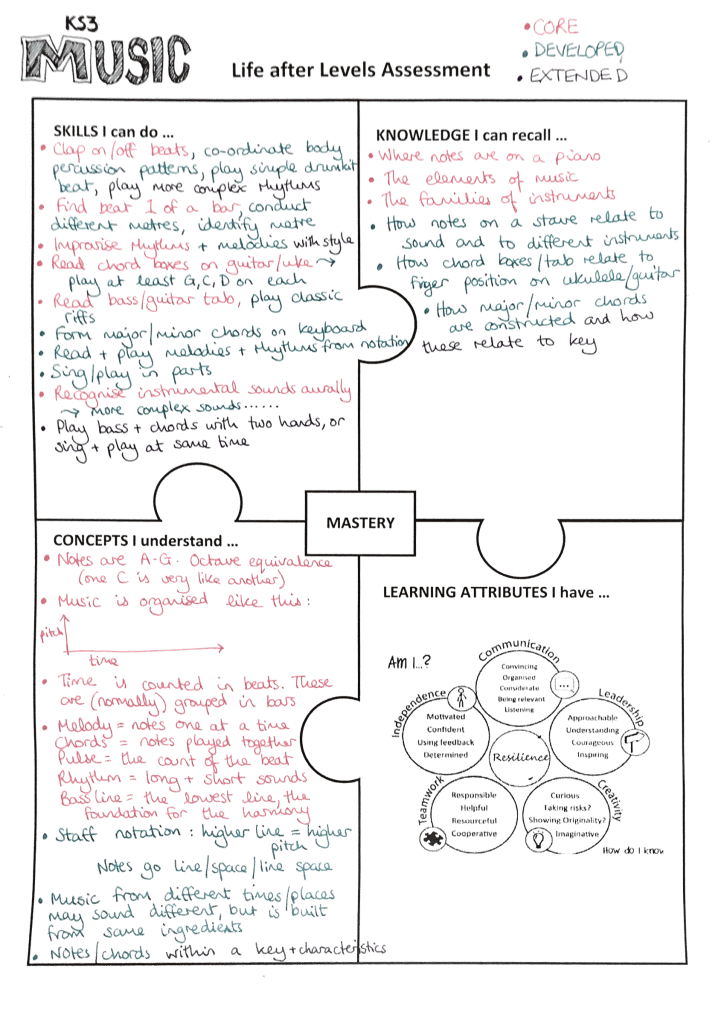 KS3
MUSIC
Life after Levels Assessment
• CORE
• DEVELOPED
• EXTENDED
SKILLS I can do ...
• Clap on/off beats, co-ordinate body
percussion patterns, play simple drumkit
beat, play more complex rhythms
• Find beat 1 of a bar, conduct
different metres, identify metre
• Improvise rhythms + melodies with style
• Read chord boxes on guitar/uke →
play at least G, C, D on each
• Read bass/guitar tab, play classic
riffs
• Form major/minor chords on keyboard
• Read + play melodies + rhythms from notation
• Sing/play in parts
• Recognise instrumental sounds aurally
→ more complex sounds......
• Play bass + chords with two hands, or
sing + play at same time
KNOWLEDGE I can recall ...
• Where notes are on a piano
• The elements of music
• The families of instruments
• How notes on a stave relate to
sound and to different instruments
• How chord boxes/tab relate to
finger position on ukulele/guitar
• How major/minor chords
are constructed and how
these relate to key
MASTERY
CONCEPTS I understand ...
• Notes are A-G. Octave equivalence
(one C is very like another)
• Music is organised like this:
pitch
time
• Time is counted in beats. These
are (normally) grouped in bars
• Melody = notes one at a time
Chords = notes played together
Pulse = the count of the beat
Rhythm = long + short sounds
Bass line = the lowest line, the
foundation for the harmony
• Staff notation: higher line = higher
pitch
Notes go line/space/line space
• Music from different times/places
may sound different, but is built
from same ingredients
• Notes/chords within a key + characteristics
LEARNING ATTRIBUTES I have ...
Am I...?
Communication
Convincing
Organised
Considerate
Being relevant
Listening
Independence
Motivated
Confident
Using feedback
Determined
Leadership
Approachable
Understanding
Courageous
Inspiring
Resilience
Teamwork
Responsible
Helpful
Resourceful
Cooperative
Creativity
Curious
Taking risks?
Showing Originality?
Imaginative
How do I know